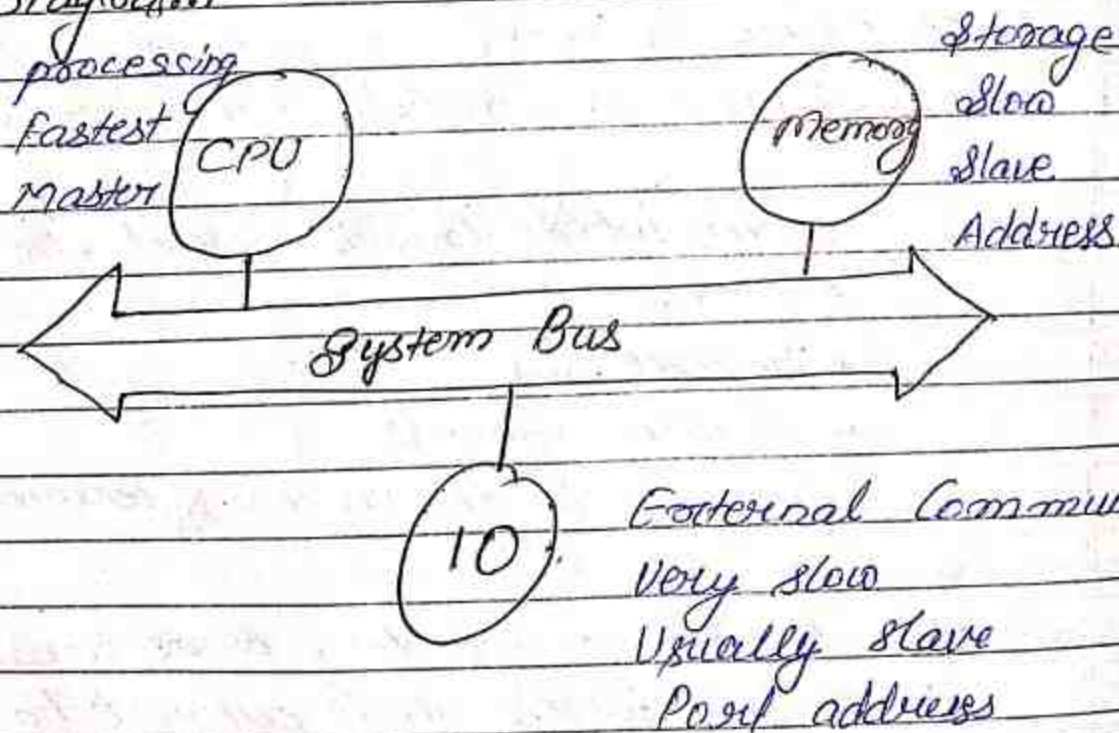 processing
Fastest
Master
CPU
Memory
Storage
Slow
Slave
Address
System Bus
IO
External Commu
Very slow
Usually slave
Port address